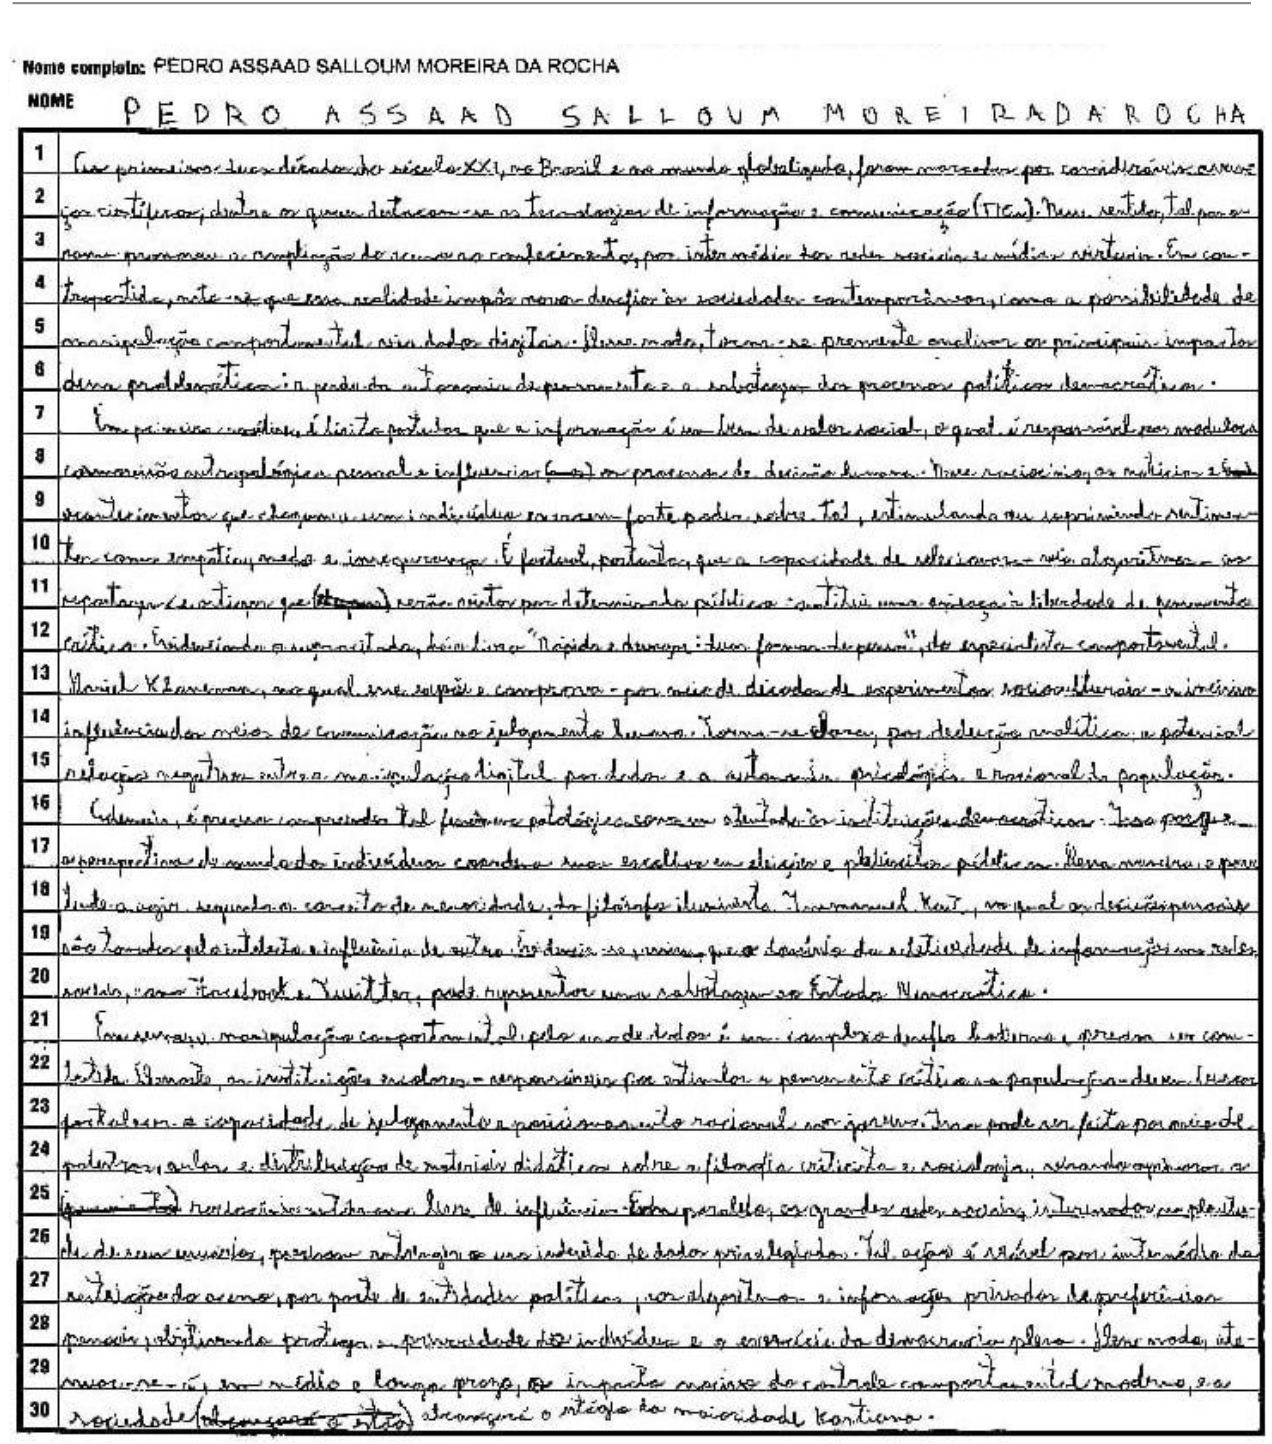 Nome completo: PEDRO ASSAAD SALLOUM MOREIRA DA ROCHA
NOME PEDRO ASSAAD SALLOUM MOREIRA DA ROCHA
1 As primeiras duas décadas do século XXI, no Brasil e no mundo globalizado, foram marcadas por consideráveis avan-
2 ços científicos, dentre os quais destacam-se as tecnologias de informação e comunicação (TICs). Nesse sentido, tal pano-
3 rama promoveu a ampliação do acesso ao conhecimento, por intermédio das redes sociais e mídias virtuais. Em con-
4 trapartida, nota-se que essa realidade impôs novos desafios às sociedades contemporâneas, como a possibilidade de
5 manipulação comportamental via dados digitais. Desse modo, torna-se premente analisar os principais impactos
6 dessa problemática: a perda da autonomia de pensamento e a sabotagem dos processos políticos democráticos.
7 Em primeira análise, é lícito postular que a informação é um bem de valor social, o qual é responsável por modular a
8 cosmovisão antropológica pessoal e influenciar os processos de decisão humana. Nesse raciocínio, as notícias e
9 acontecimentos que chegam a um indivíduo exercem forte poder sobre tal, estimulando ou suprimindo sentimen-
10 tos como empatia, medo e insegurança. É factual, portanto, que a capacidade de selecionar - via algoritmos - as
11 reportagens e artigos que serão vistos por determinado público constitui uma ameaça à liberdade de pensamento
12 crítico. Evidenciando o supracitado, há o livro "Rápido e devagar: duas formas de pensar", do especialista comportamental
13 Daniel Khaneman, no qual esse expõe e comprova - por meio de décadas de experimentos socioculturais - a incisiva
14 influência dos meios de comunicação no julgamento humano. Torna-se clara, por dedução analítica, a potencial
15 relação negativa entre a manipulação digital por dados e a autonomia psicológica e racional da população.
16 Ademais, é preciso compreender tal fenômeno patológico como um atentado às instituições democráticas. Isso porque
17 a perspectiva de mundo dos indivíduos coordena suas escolhas em eleições e plebiscitos públicos. Dessa maneira, o povo
18 tende a agir segundo o conceito de menoridade, do filósofo iluminista Immanuel Kant, no qual as decisões pessoais
19 são tomadas pelo intelecto e influência de outro. Evidencia-se, assim, que o domínio da seletividade de informações nas redes
20 sociais, como Facebook e Twitter, pode representar uma sabotagem ao Estado Democrático.
21 Em suma, a manipulação comportamental pelo uso de dados é um complexo desafio hodierno e precisa ser com-
22 batida. Dessarte, as instituições escolares - responsáveis por estimular o pensamento crítico na população - devem buscar
23 fortalecer a capacidade de julgamento e posicionamento racional nos jovens. Isso pode ser feito por meio de
24 palestras, aulas e distribuição de materiais didáticos sobre a filosofia criticista e sociologia, visando aprimorar o
25 raciocínio autônomo livre de influências. Em paralelo, as grandes redes sociais, interessadas na plenitu-
26 de de seus usuários, precisam restringir o uso indevido de dados privilegiados. Tal ação é viável por intermédio da
27 restrição do acesso, por parte de entidades políticas, aos algoritmos e informações privadas de preferências
28 pessoais, objetivando proteger a privacidade do indivíduo e o exercício da democracia plena. Desse modo, ate-
29 nuar-se-á, em médio e longo prazo, o impacto nocivo do controle comportamental moderno, e a
30 sociedade alcançará o estágio da maioridade Kantiana.